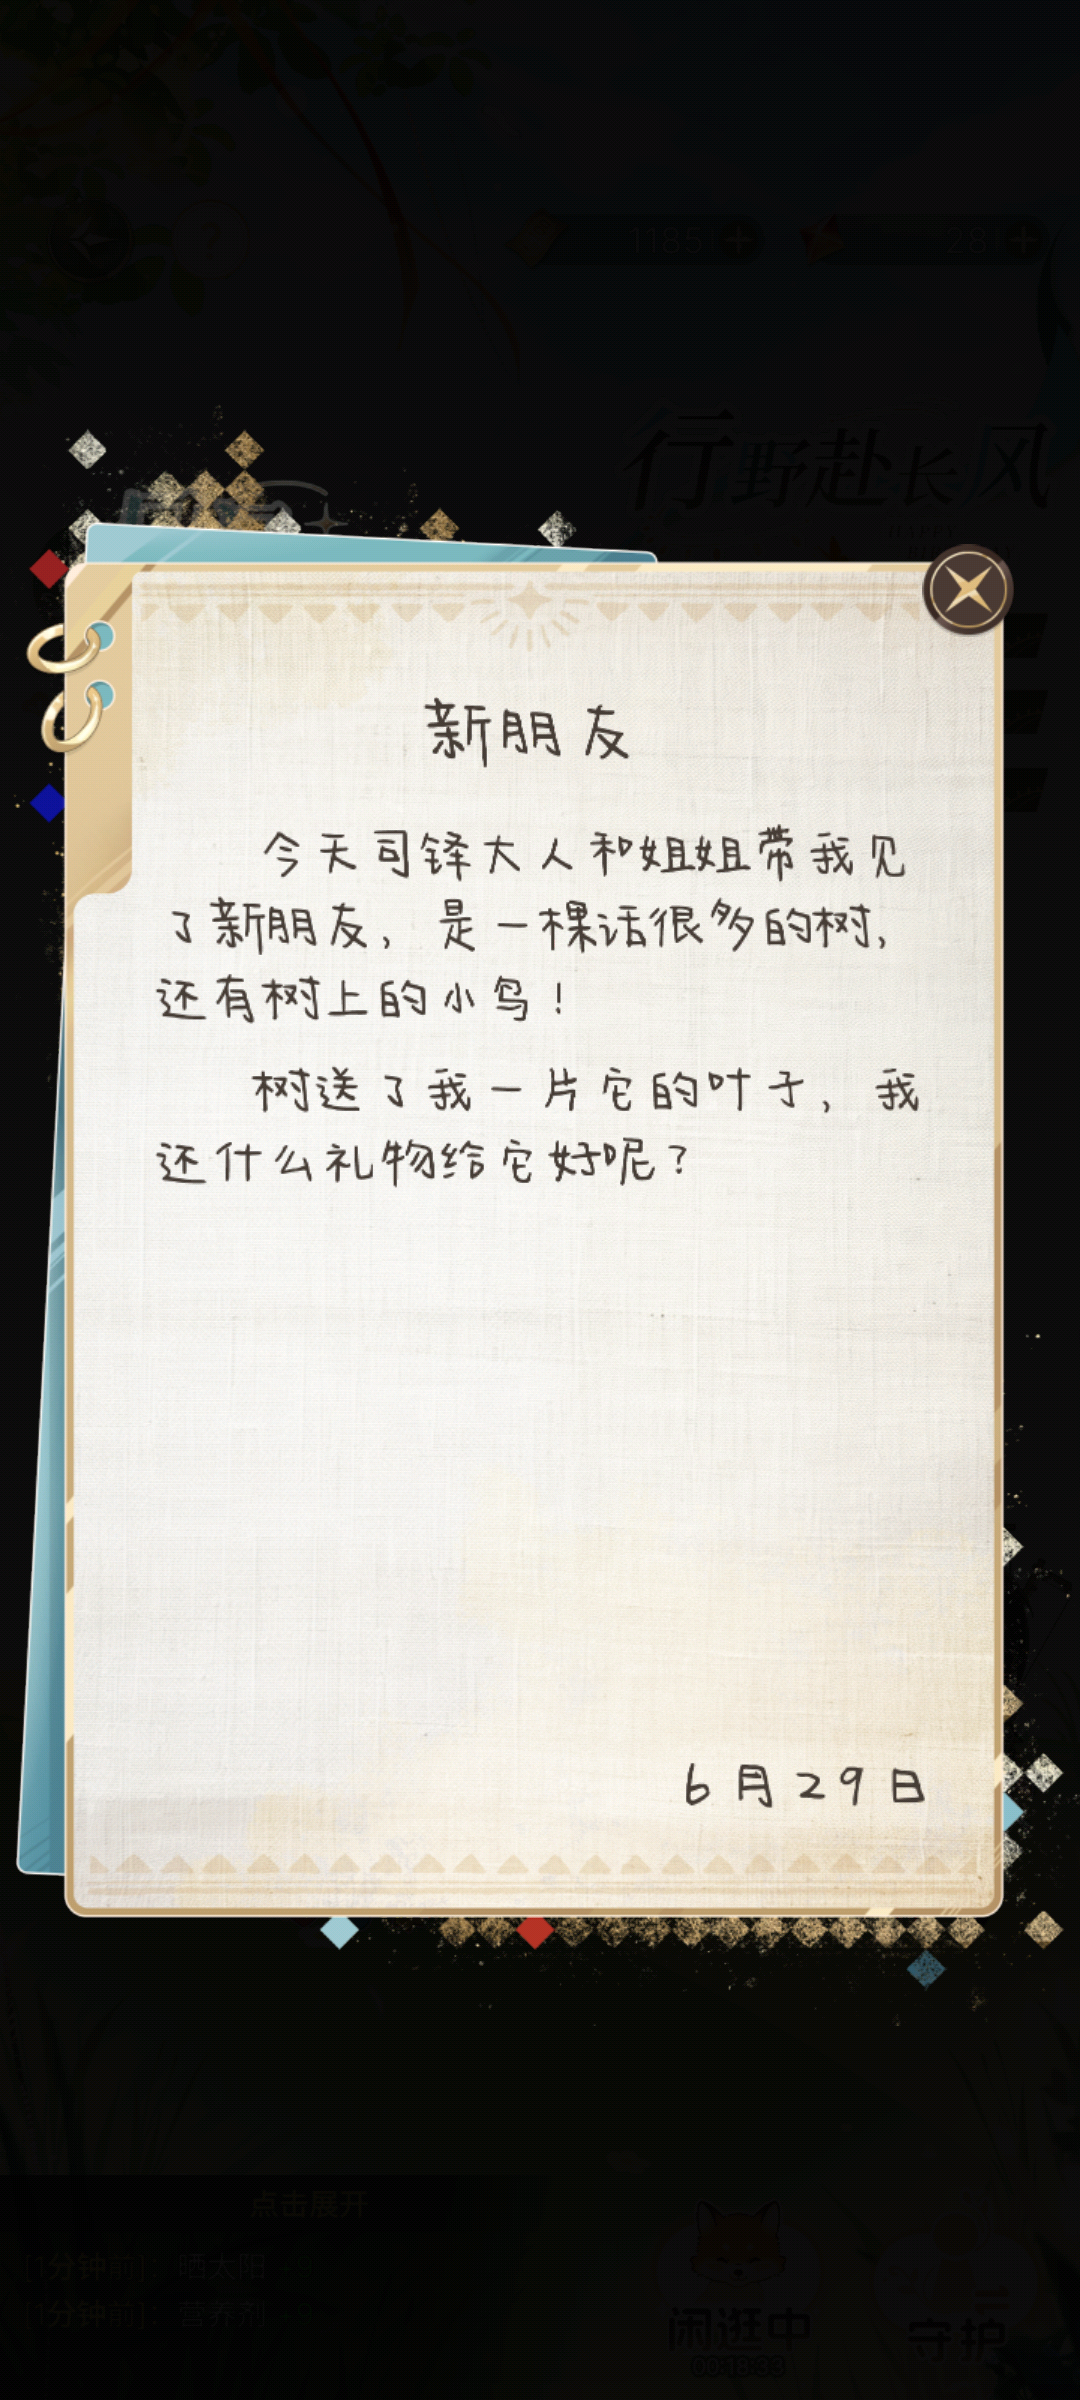 1185
28
行野赴长风
HAPPY
新朋友
今天司铎大人和姐姐带我见
了新朋友，是一棵话很多的树，
还有树上的小鸟！
树送了我一片它的叶子，我
还什么礼物给它好呢？
6月29日
点击展开
[1分钟前]：晒太阳 +9
[1分钟前]：营养剂 +9
闲逛中
00:18:33
守护